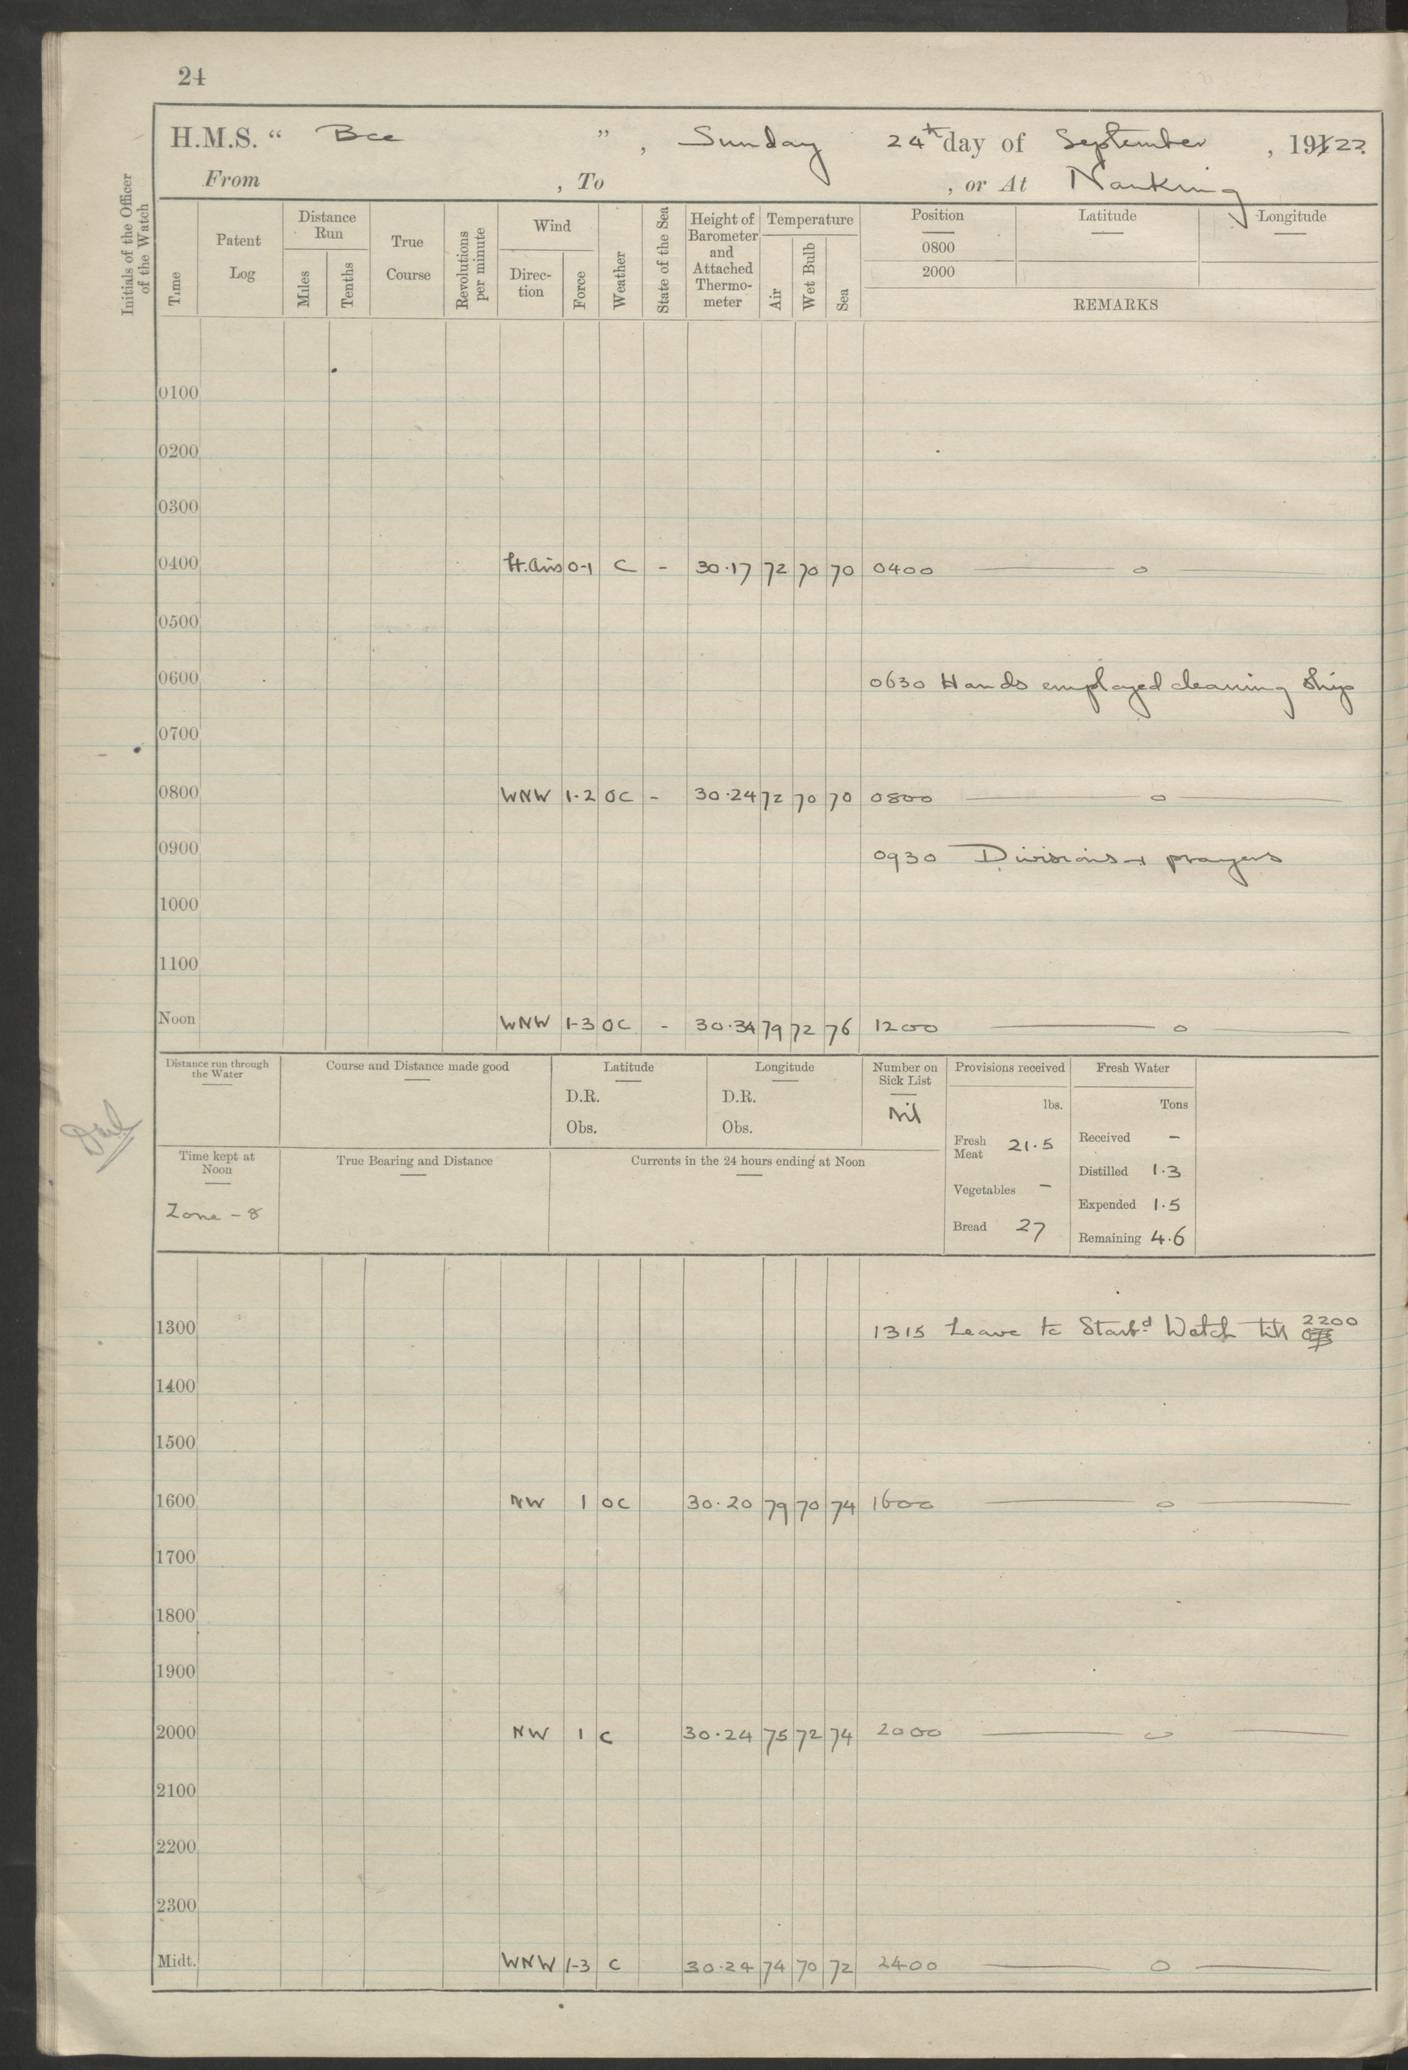 24
H.M.S. “ Bee ” , Sunday 24th day of September , 191 22.
From , To , or At Nanking
Initials of the Officer of the Watch
Time Patent Log Distance Run Miles Tenths True Course Revolutions per minute Wind Direc-tion Force Weather State of the Sea Height of Barometer and Attached Thermo-meter Temperature Air Wet Bulb Sea Position Latitude Longitude
0800
2000
REMARKS
0100
0200
0300
0400 Lt. Airs 0-1 C - 30.17 72 70 70 0400 — o —
0500
0600
0630 Hands employed cleaning Ship
0700
0800 WNW 1-2 OC - 30.24 72 70 70 0800 — o —
0900
0930 Divisions + prayers
1000
1100
Noon WNW 1-3 OC - 30.34 79 72 76 1200 — o —
Distance run through the Water Course and Distance made good Latitude Longitude Number on Sick List Provisions received Fresh Water
D.R. D.R. Nil lbs. Tons
Obs. Obs. Fresh Meat 21.5 Received -
Time kept at Noon True Bearing and Distance Currents in the 24 hours ending at Noon
Vegetables - Distilled 1.3
Zone - 8 Bread 27 Expended 1.5
Remaining 4.6
1300 1315 Leave to Starbd Watch till 2200
1400
1500
1600 NW 1 OC 30.20 79 70 74 1600 — o —
1700
1800
1900
2000 NW 1 C 30.24 75 72 74 2000 — o —
2100
2200
2300
Midt. WNW 1-3 C 30.24 74 70 72 2400 — o —